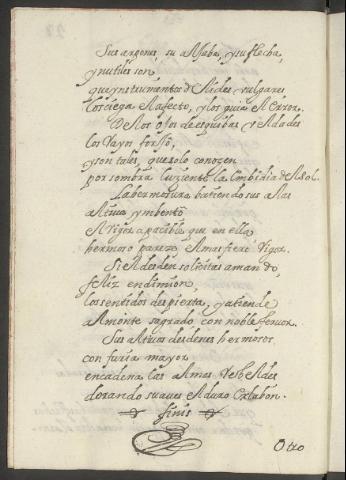 Sus arpones, su Aljaba, y su flecha,
ynutiles son
que ynstrumentos de Aldes vulgares
los ciega el afecto, y los guia el error.
De los ojos de esquibas Deydades
los
y son tales, que solo conozen
por sombra luziente la Embidia del Sol.
La hermosura batiendo sus alas
Altiva ynbentò
el Vigor apacible que en ella
hermoso pareze el mas fiero Vigor.
Si el desden solicitas amando,
feliz endimion,
los sentidos despierta, y atiende
al monte sagrado con noble feruor.
Sus altivos desdenes hermosos
con furia mayor
encadena las Almas rebeldes
dorando suaves el duro Eslabon.
finis
Otro